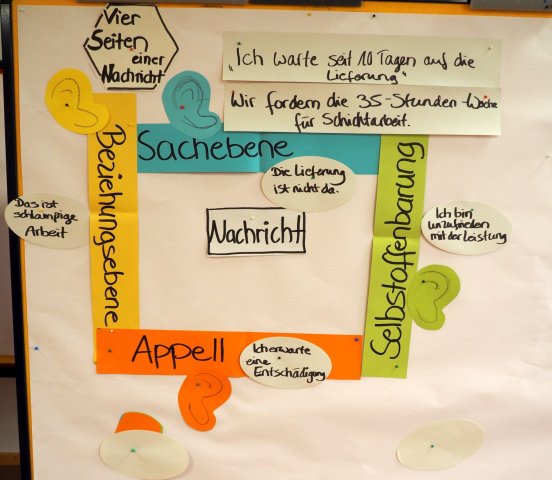 Vier
Seiten
einer
Nachricht
„Ich warte seit 10 Tagen auf die
Lieferung"
Wir fordern die 35-Stunden-Woche
für Schichtarbeit.
Sachebene
Die Lieferung
ist nicht da.
Beziehungsebene
Das ist
schlampige
Arbeit
Nachricht
Selbstoffenbarung
Ich bin
unzufrieden
mit der Leistung
Appell
Ich erwarte
eine
Entschädigung